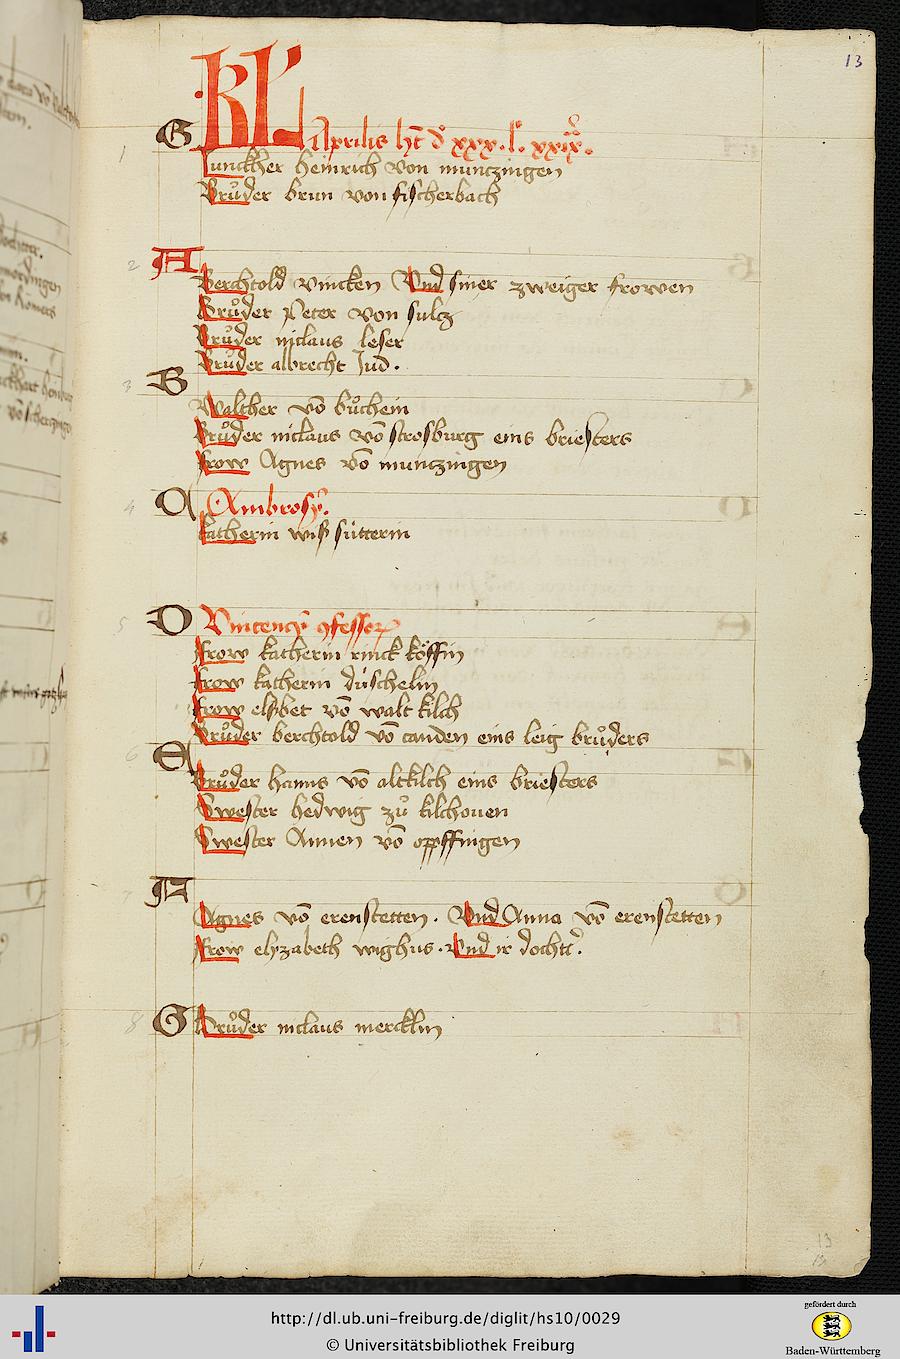 13
KL
G Aprilis ht dˢ xxx. lˢ. xxix.
1 Junckher heinrich von muntzingen
Brůder brun von fischerbach
2 A
Berchtold vincken Vnd siner zweiger frowen
Brůder Peter von sultz
Brůder niclaus leser
Brůder albrecht Jud.
3 B
Walther vō bůchein
Brůder niclaus vō strosburg eins briesters
frow Agnes vō muntzingen
4 C Ambrosy.
katherin wiß sütterin
5 D Vincency ꝯfessoꝝ
frow katherin rinck köffin
frow katherin düschelin
frow elsbet vō walt kilch
Brůder berchtold vō canden eins leig brůders
6 E
Brůder hanns vō altkilch eins briesters
Swester hedwig zů kilchouen
Swester Annen vō opffingen
7 F
Agnes vō erenstetten. Vnd Anna vō erenstetten
Frow elyzabeth wighus. Vnd ir dochtˢ.
8 G Brůder niclaus mercklin
13
http://dl.ub.uni-freiburg.de/diglit/hs10/0029
© Universitätsbibliothek Freiburg
gefördert durch
Baden-Württemberg